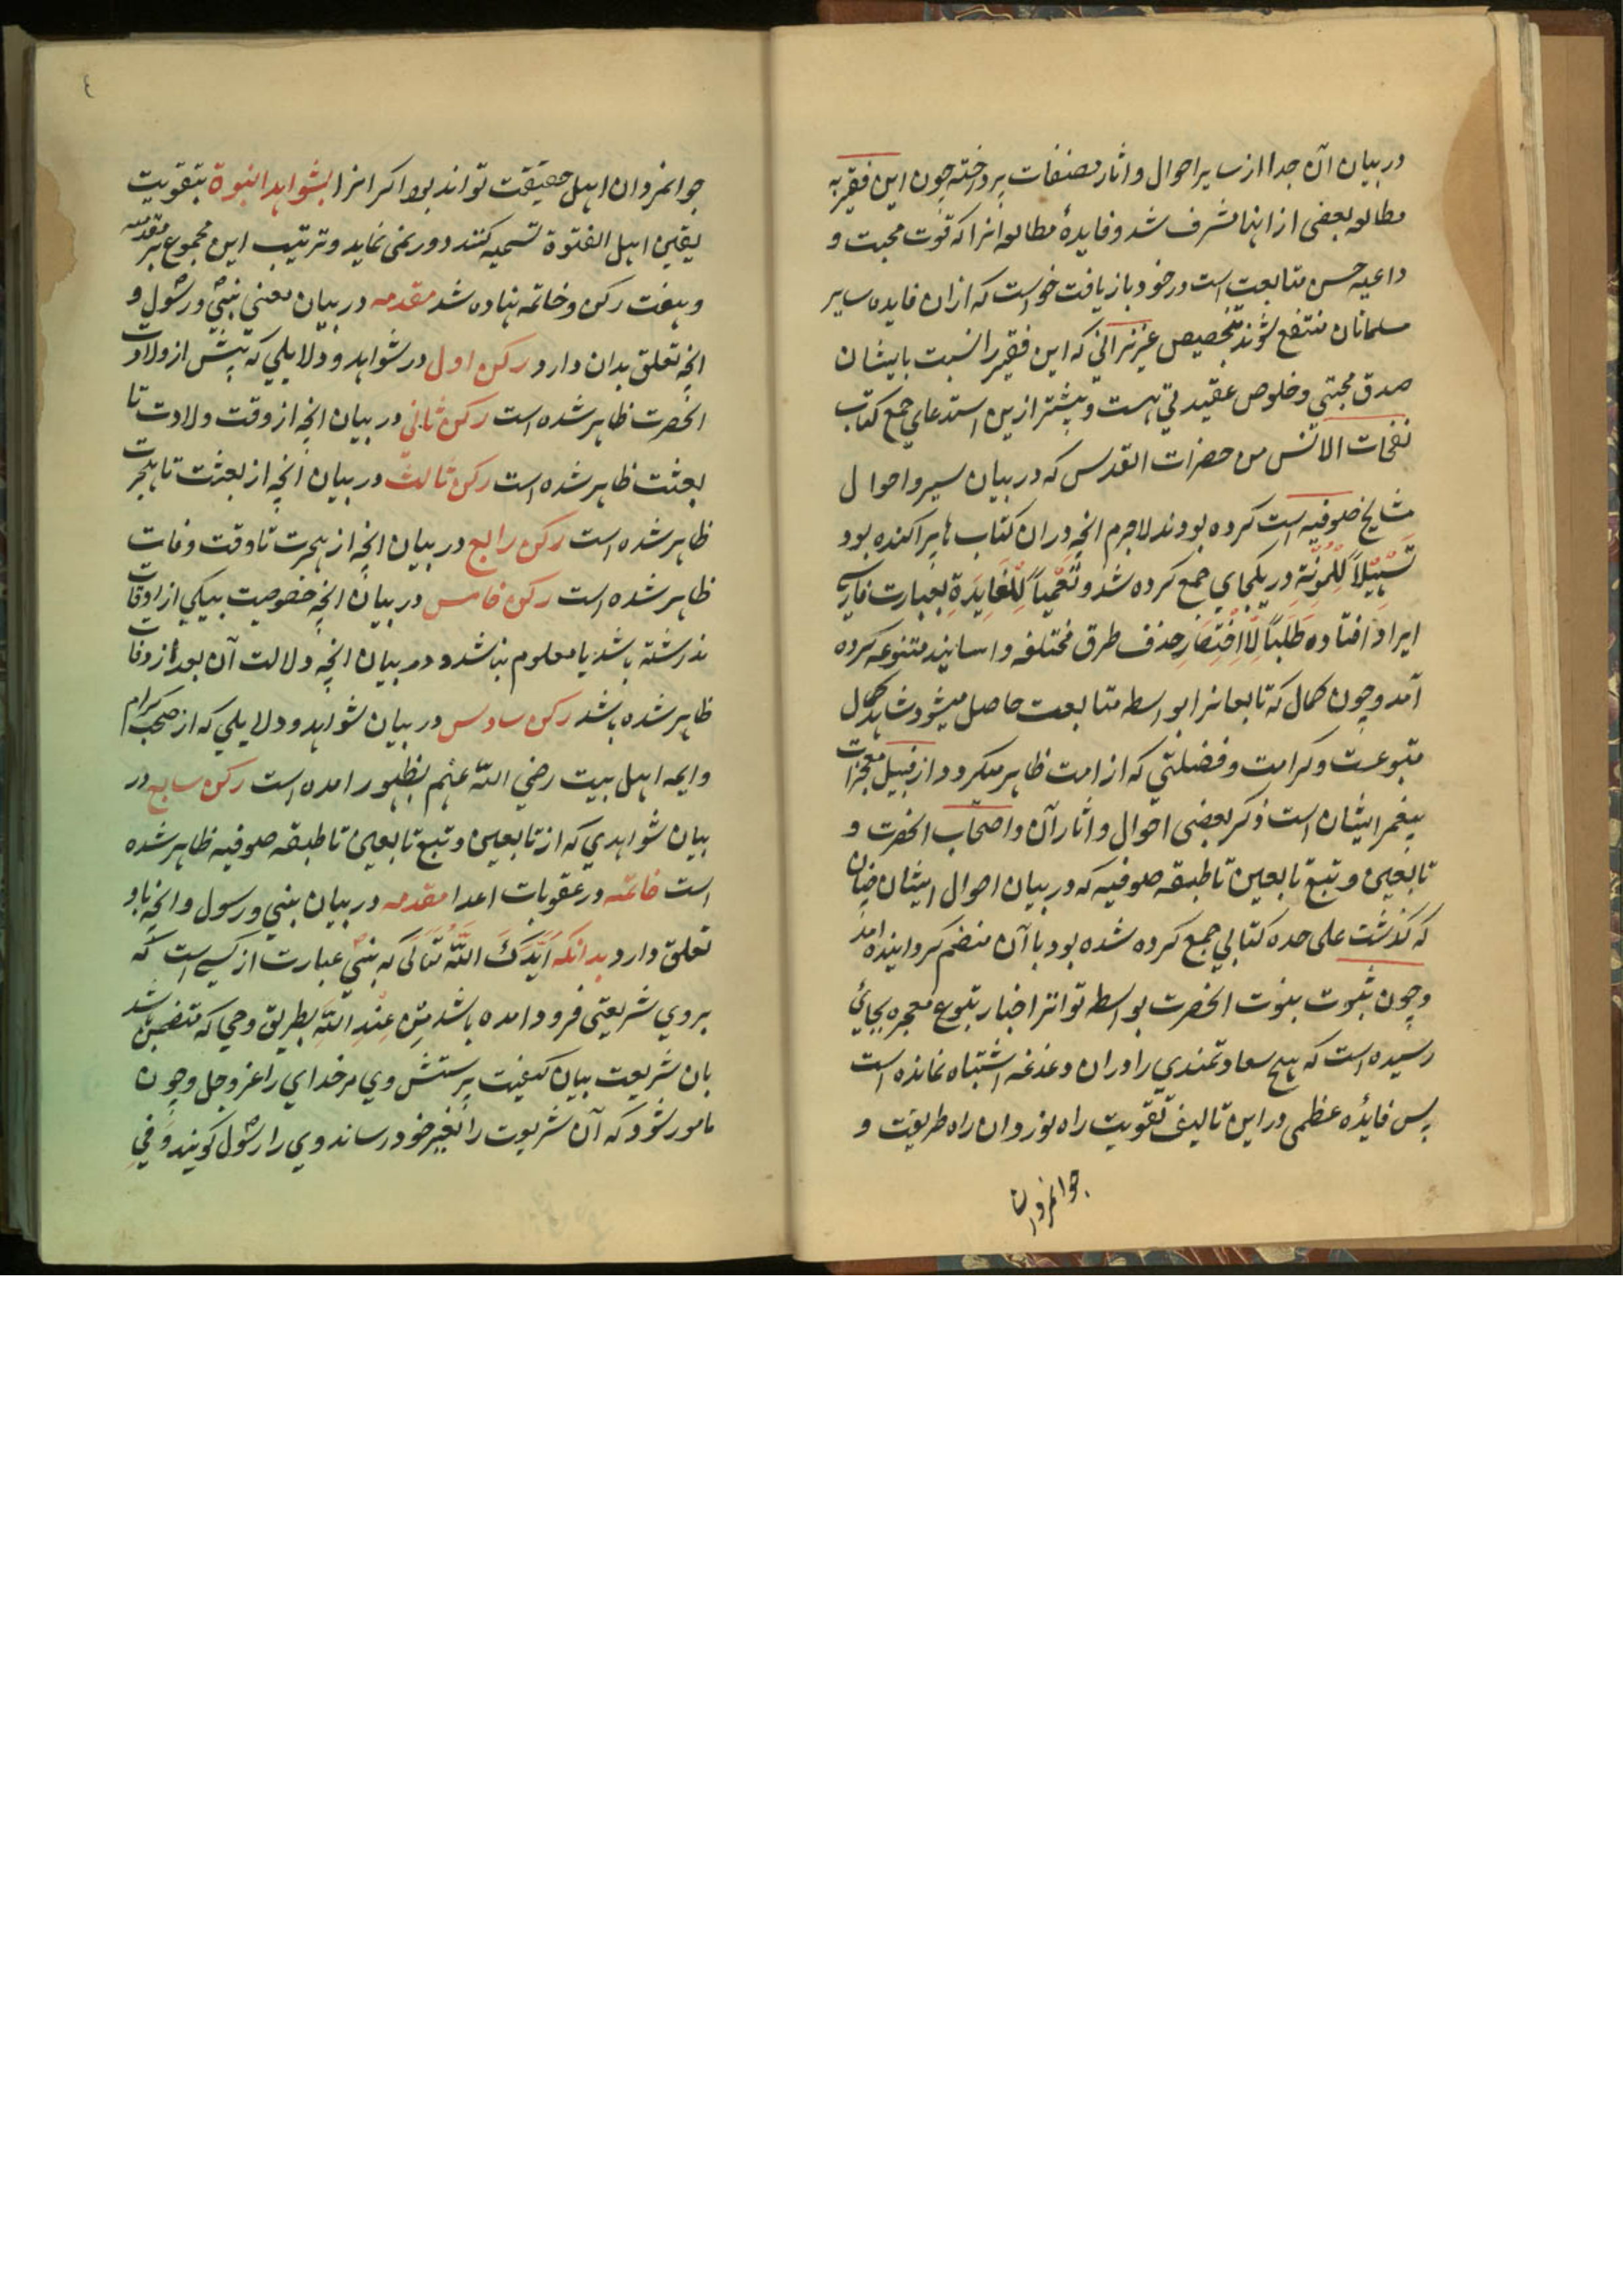 در بیان آن جدا از سایر احوال و اثار مصنفات پرداخته چون این فقیر به
مطالعه بعضی از اینها مشرف شد و فایدهٔ مطالعه انرا که قوت محبت و
داعیه حسن متابعت است در خود باز یافت خواست که ازان فایده سایر
مسلمانان منتفع شوند بتخصیص عزیزانی که این فقیر را نسبت بایشان
صدق محبتی و خلوص عقیدتی هست و پیشتر ازین استدعای جمع کتاب
نفحات الانس من حضرات القدس که در بیان سیر و احوال
مشایخ صوفیه است کرده بودند لاجرم انچه دران کتاب ها پراکنده بود
تَسْهِیْلاً لِلْمُؤْنَةِ در یکجای جمع کرده شد و تَعْمِیْماً لِلْفَایِدَةِ بعبارت فارسی
ایراد افتاده طَلَباً لِلْاِخْتِصَارِ حذف طرق مختلفه و اسانید متنوعه کرده
آمد و چون کمال که تابعانرا بواسطه متابعت حاصل میشود شاهد کمال
متبوعست و کرامت و فضیلتی که از امت ظاهر میکردد از قبیل معجزات
پیغمر ایشان است ذکر بعضی احوال و اثار آن و اصحاب انحضرت و
تابعین و تبع تابعین تا طبقه صوفیه که در بیان احوال ایشان چنان
که کذشت علی حده کتابی جمع کرده شده بود باآن منضم کردانیده امد
و چون ثبوت نبوت انحضرت بواسطه تواتر اخبار بوقوع معجزه بجائی
رسیده است که هیچ سعادتمندی را دران دغدغه اشتباه نمانده است
پس فایدهٔ عظمی در این تالیف تقویت راه نوردان راه طریقت و
جوانمردان
٤
جوانمردان اهل حقیقت تواند بود اکر انرا بشواهد النبوة بتقویت
یقین اهل الفتوة تسمیه کنند دور نمی نماید و ترتیب این مجموع بر مقدمه
و هفت رکن و خاتمه نهاده شد مقدمه در بیان معنی نبی و رسول و
انچه تعلق بدان دارد رکن اول در شواهد و دلایلی که پیش از ولادت
انحضرت ظاهر شده است رکن ثانی در بیان انچه از وقت ولادت تا
بعثت ظاهر شده است رکن ثالث در بیان انچه از بعثت تا هجرت
ظاهر شده است رکن رابع در بیان انچه از هجرت تا وقت وفات
ظاهر شده است رکن خامس در بیان انچه خصوصیت بیکی از اوقات
نداشته باشد یا معلوم نباشد و در بیان انچه دلالت آن بعد از وفات
ظاهر شده باشد رکن سادس در بیان شواهد و دلایلی که از صحابه کرام
و ایمه اهل بیت رضی الله عنهم بظهور امده است رکن سابع در
بیان شواهدی که از تابعین و تبع تابعین تا طبقه صوفیه ظاهر شده
است خاتمه در عقوبات اعدا مقدمه در بیان نبی و رسول و انچه باو
تعلق دارد بدانکه اَیَّدَکَ اللّٰهُ تَعَالٰی که نبی عبارت از کسی است که
بروی شریعتی فرود امده باشد مِنْ عِنْدِ اللّٰهِ بطریق وحی که متضمن باشد
بان شریعت بیان کیفیت پرستش وی مر خدای را عز وجل و چون
مامور شود که آن شریعت را بغیر خود رساند وی را رسول کویند وَفِی